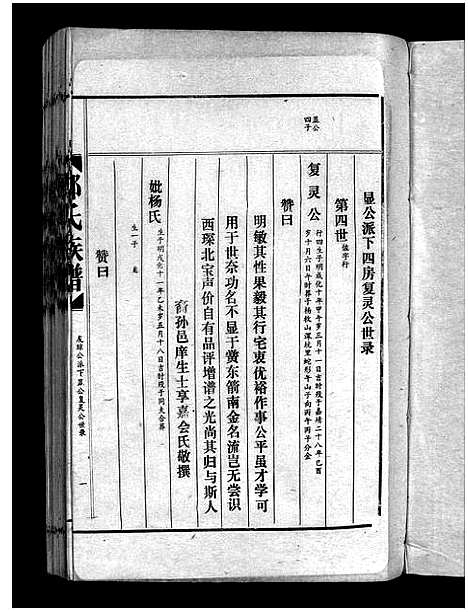 显公派下四房复灵公世录
第四世 依字行
显公四子
复灵公 行四生于明成化十年甲午岁三月十一日吉时殁于嘉靖二十八年己酉
岁十月六日午时葬于杨牧山深坑里蛇形午山子向丙午丙子分金
赞曰
明敏其性果毅其行宅衷优裕作事公平虽才学可
用于世奈功名不显于黉东箭南金名流岂无尝识
西琛北宝声价自有品评增谱之光尚其归与斯人
裔孙邑庠生士享嘉会氏敬撰
妣杨氏 生于明成化十一年乙未岁五月十八日吉时殁于同夫合葬
生一子
赞曰
氏族谱
友琼公派下显公复灵公世录
一